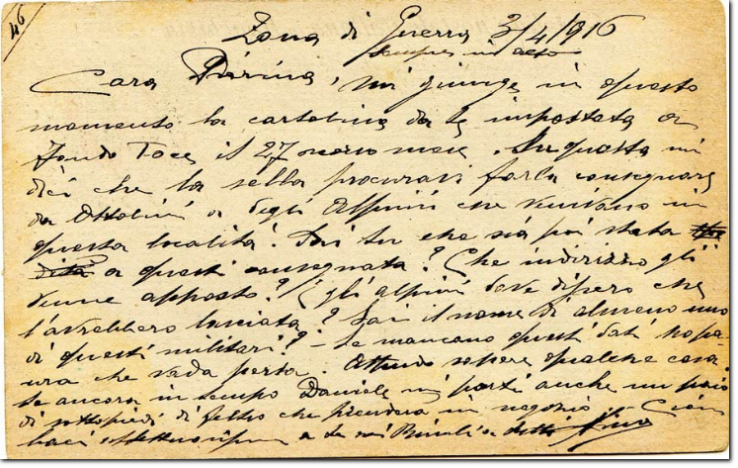 46
Zona di Guerra 3/4/916
sempre in alto
Cara Pierina, mi giunge in questo
momento la cartolina da te impostata a
Fondo Toce il 27 mese. In questa mi
dici che la sella procuravi farla consegnare
da Ottolini a degli Alpini che venivano in
questa località. Sai tu che sia poi stata
a questi consegnata? Che indirizzo gli
venne apposto? Gli alpini dove dissero che
l'avrebbero lasciata? Sai il nome di almeno uno
di questi militari? - Se mancano questi dati ho pa-
ura che vada persa. Attendo sapere qualche cosa
se ancora in tempo Daniele mi porti anche un paio
di sottopiedi di feltro che prenderà in negozio.
baci a te